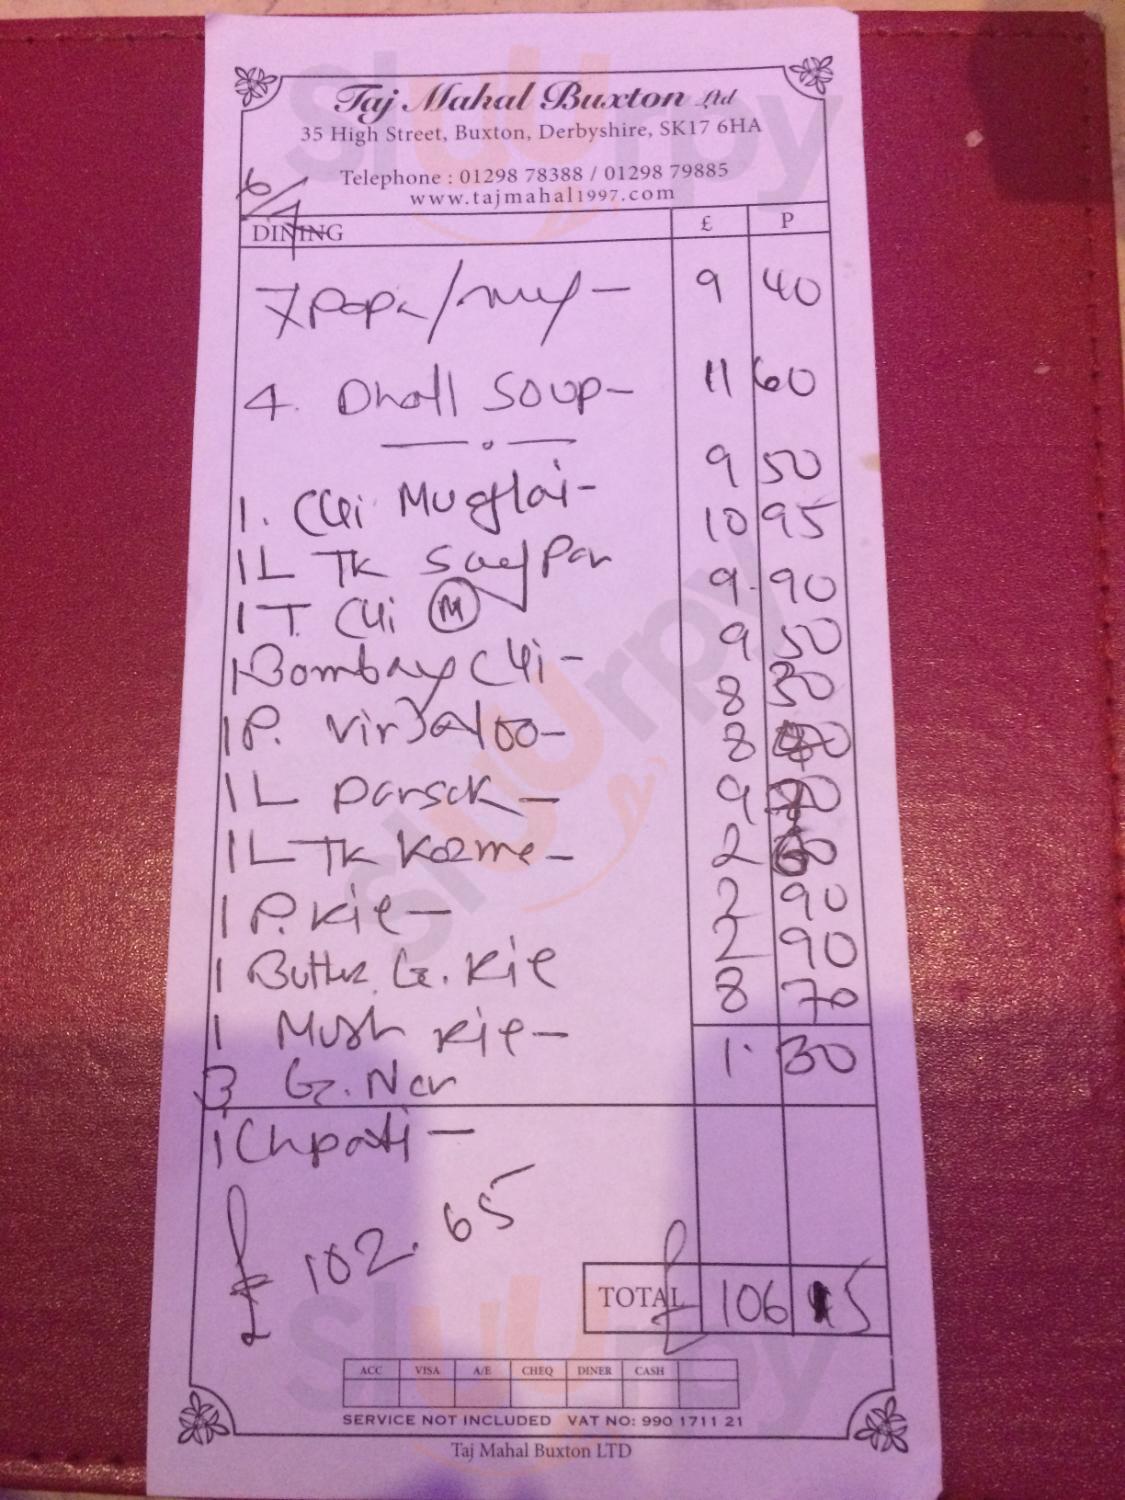 Taj Mahal Buxton Ltd
35 High Street, Buxton, Derbyshire, SK17 6HA
Telephone : 01298 78388 / 01298 79885
www.tajmahal1997.com
6/7
DINING £ P
7 Popa/ 9 40
4. Dhall Soup- 11 60
1. Chi Muglai- 9 50
1 L TK Sag Pan 10 95
1 T. Chi M 9.90
1 Bombay Chi- 9 50
1 P. Vindaloo- 8 30
1 L Parsak- 8
1 L TK Korme- 9
1 P. Rie- 2
1 Butter G. Rie 2 90
1 Mush Rie- 2 90
3 G. Nan 8 70
1 Chpati- 1. 30
£ 102.65
TOTAL £ 106 15
ACC VISA A/E CHEQ DINER CASH
SERVICE NOT INCLUDED VAT NO: 990 1711 21
Taj Mahal Buxton LTD
Sluurpy
Sluurpy
Sluurpy